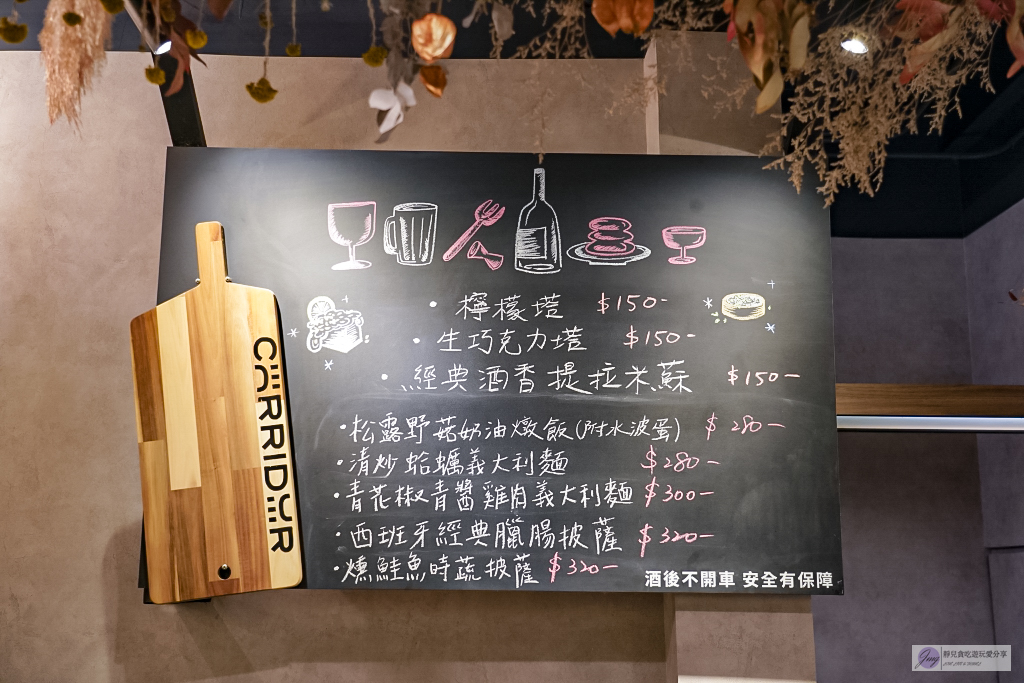 CORRIDOR
• 檸檬塔 $150-
• 生巧克力塔 $150-
• 經典酒香提拉米蘇 $150-
• 松露野菇奶油燉飯(附水波蛋) $280-
• 清炒蛤蠣義大利麵 $280-
• 青花椒青醬雞肉義大利麵 $300-
• 西班牙經典臘腸披薩 $320-
• 燻鮭魚時蔬披薩 $320-
酒後不開車 安全有保障
Jing 靜兒貪吃遊玩愛分享